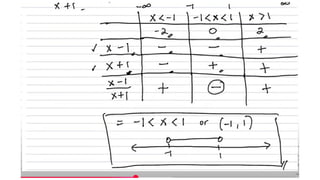 x+1 . -∞ -1 1 ∞
x<-1 -1<x<1 x>1
-2 0 2
✓ x-1 - - +
✓ x+1 - + +
x-1/x+1 + ⊖ +
= -1<x<1 or (-1,1)
-1 1